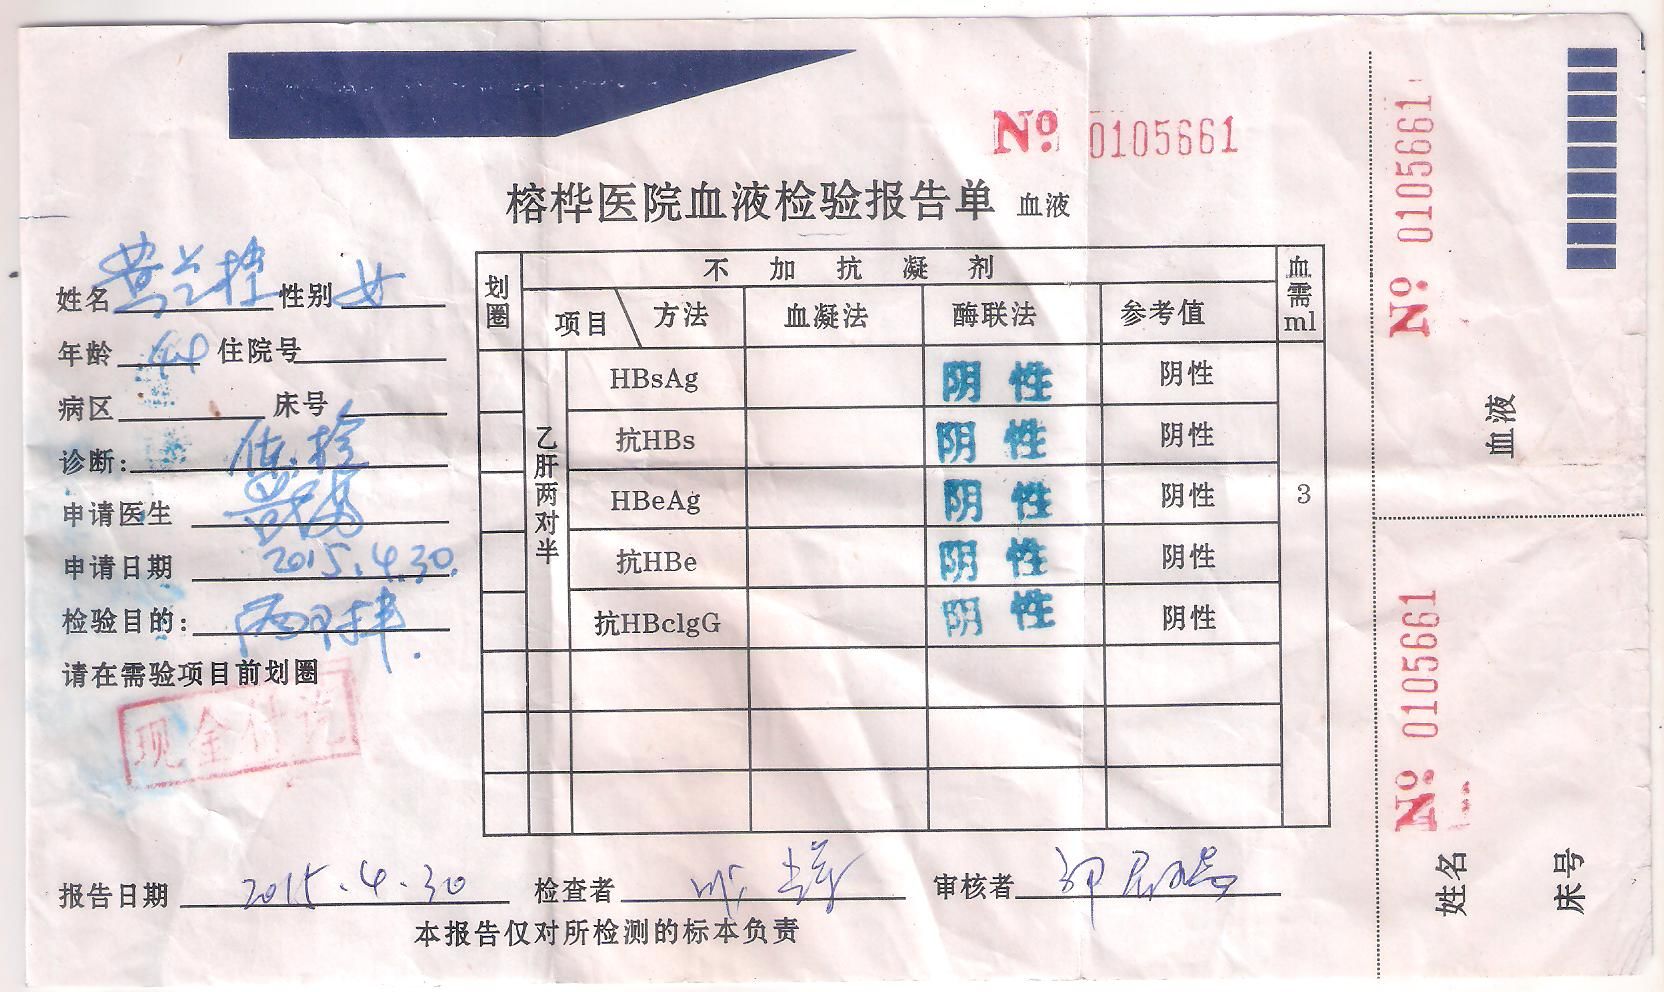 № 0105661
榕桦医院血液检验报告单 血液
姓名 黄兰 性别 女
年龄 44 住院号
病区 床号
诊断: 体检
申请医生
申请日期 2015.4.30.
检验目的: 两对半.
请在需验项目前划圈
现金付讫
划圈 不加抗凝剂 血需ml
项目 方法 血凝法 酶联法 参考值
乙肝两对半
HBsAg 阴性 阴性
抗HBs 阴性 阴性
HBeAg 阴性 阴性 3
抗HBe 阴性 阴性
抗HBclgG 阴性 阴性
报告日期 2015.4.30 检查者 审核者
本报告仅对所检测的标本负责
№ 0105661
血液
№ 0105661
姓名
床号